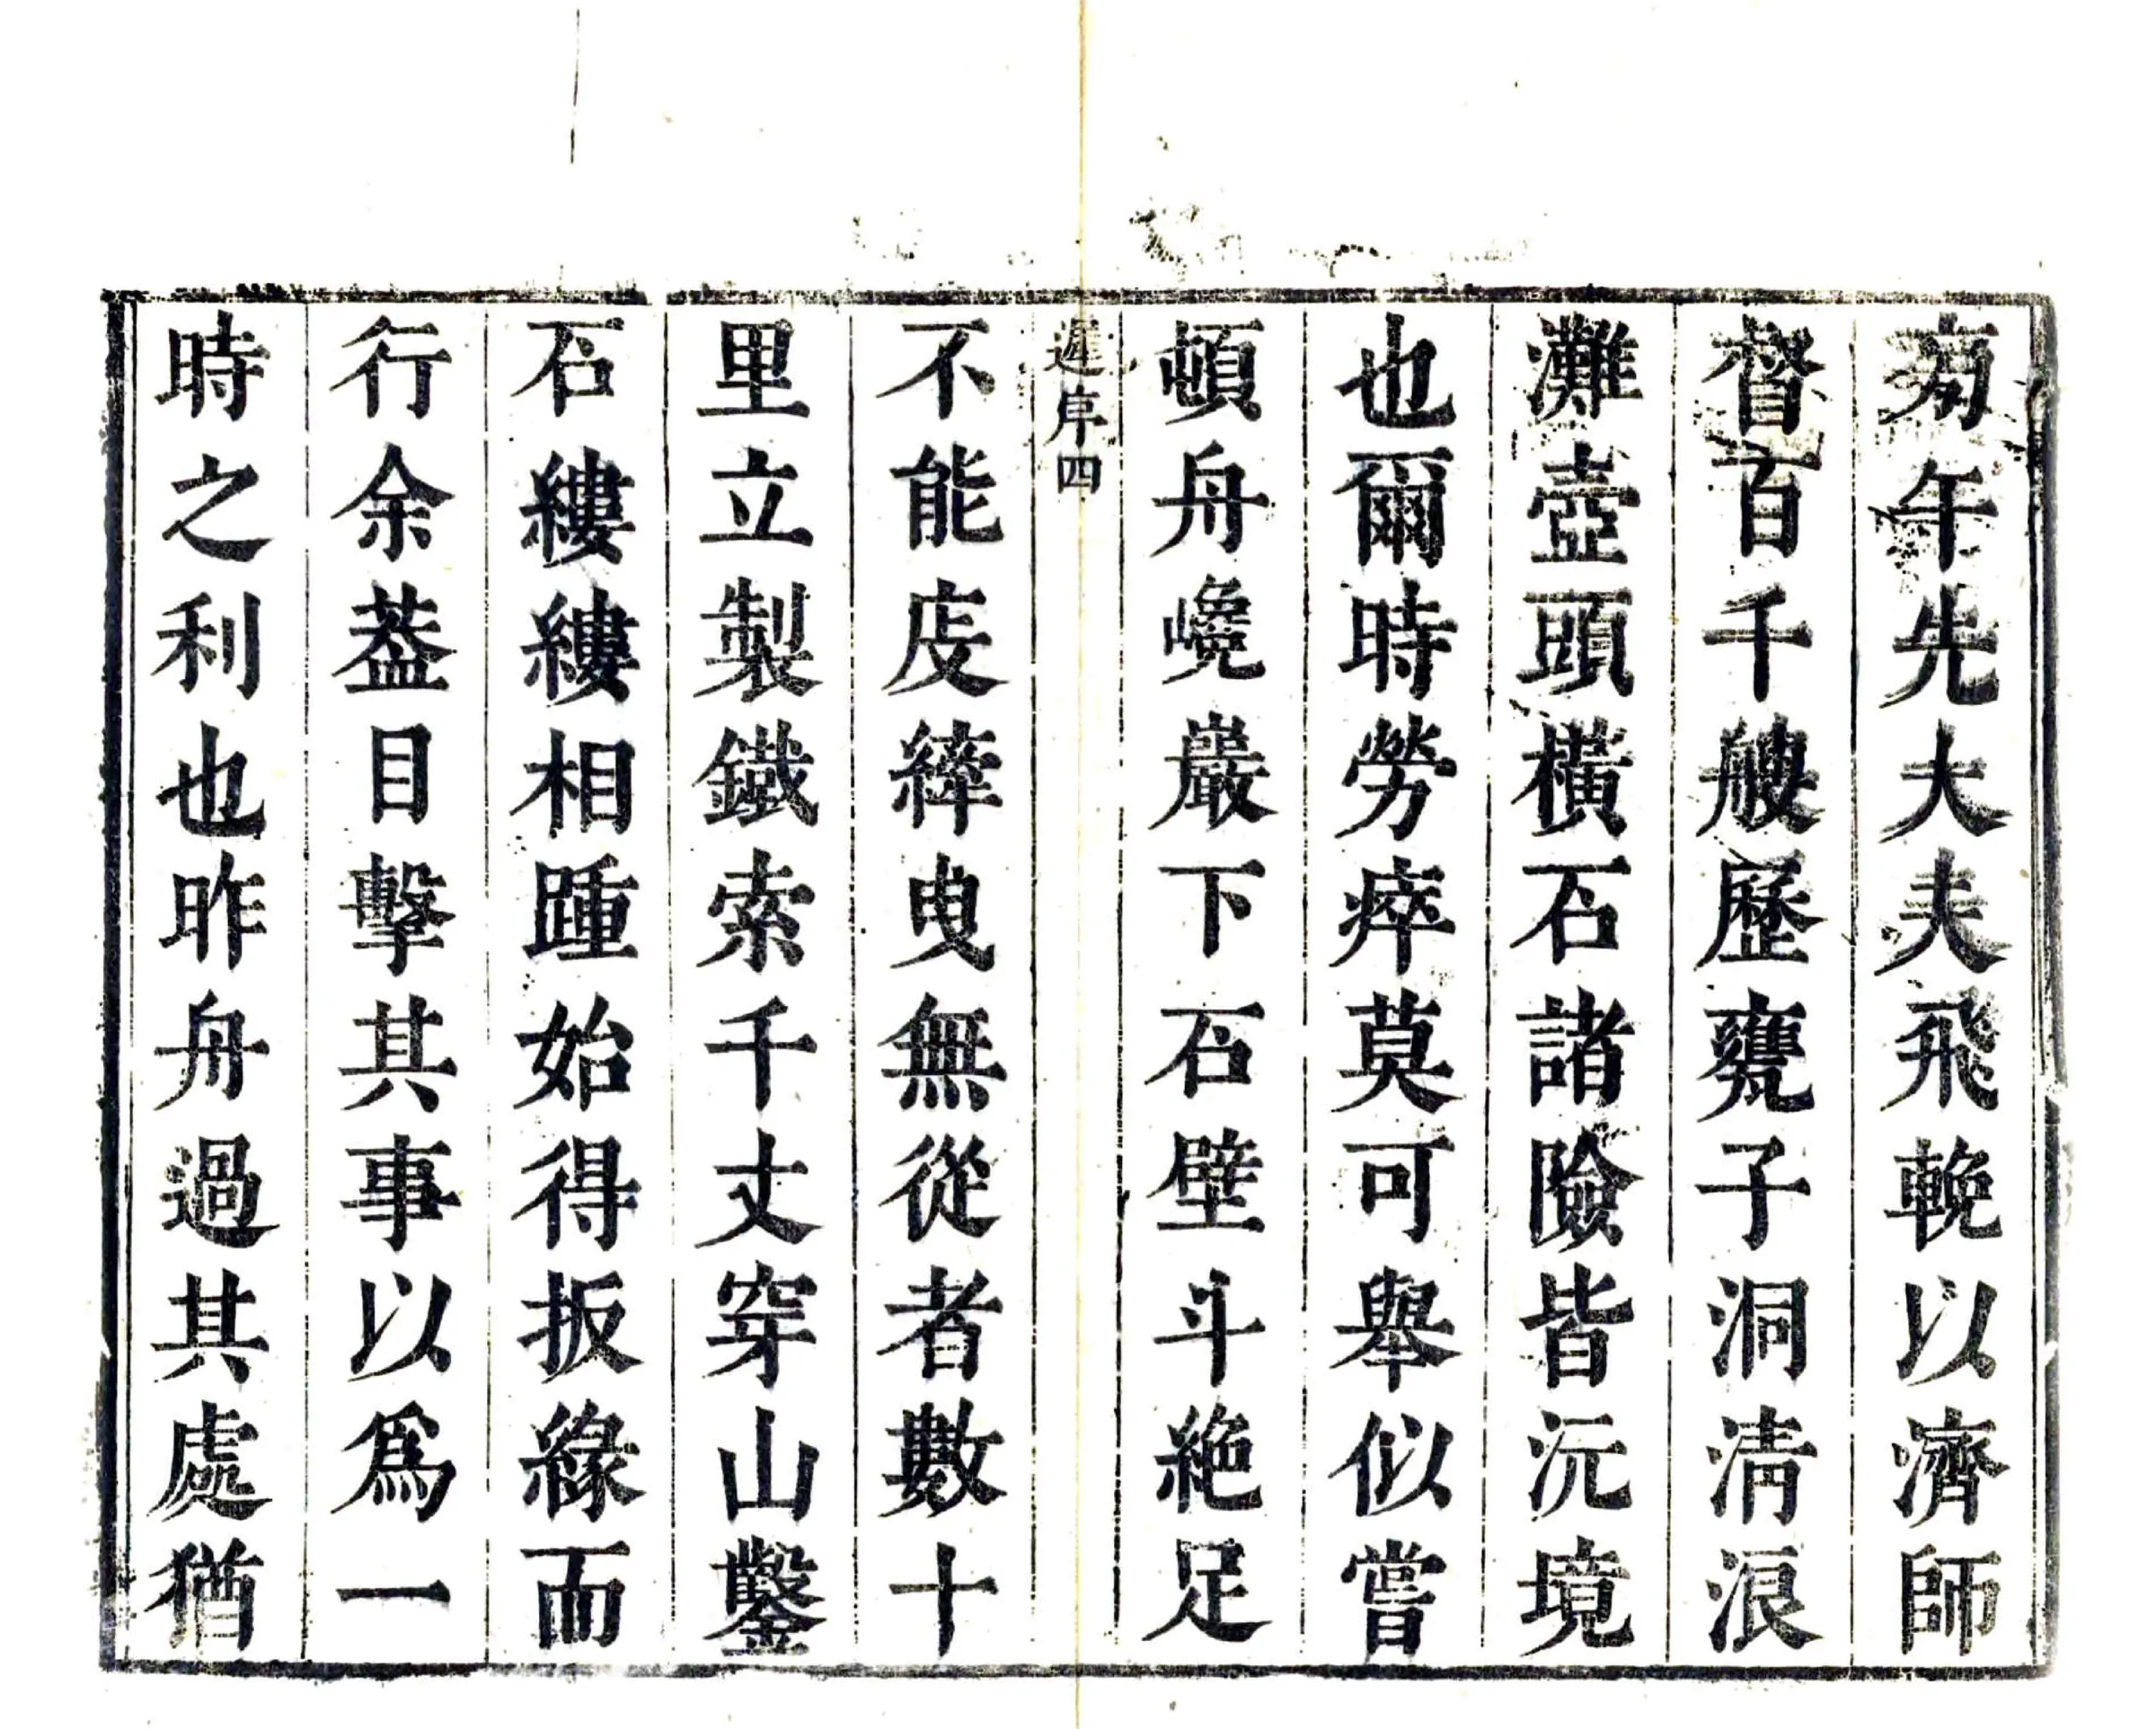 午先大夫飛輓以濟師
督百千艘歷甕子洞清浪
灘壺頭橫石諸險皆沅境
也爾時勞瘁莫可舉似嘗
頓舟巉巖下石壁斗絶足
遲序四
不能庋縴曳無從者數十
里立製鐵索千丈穿山鑿
石縷縷相踵始得扳緣而
行余葢目擊其事以爲一
時之利也昨舟過其處猶